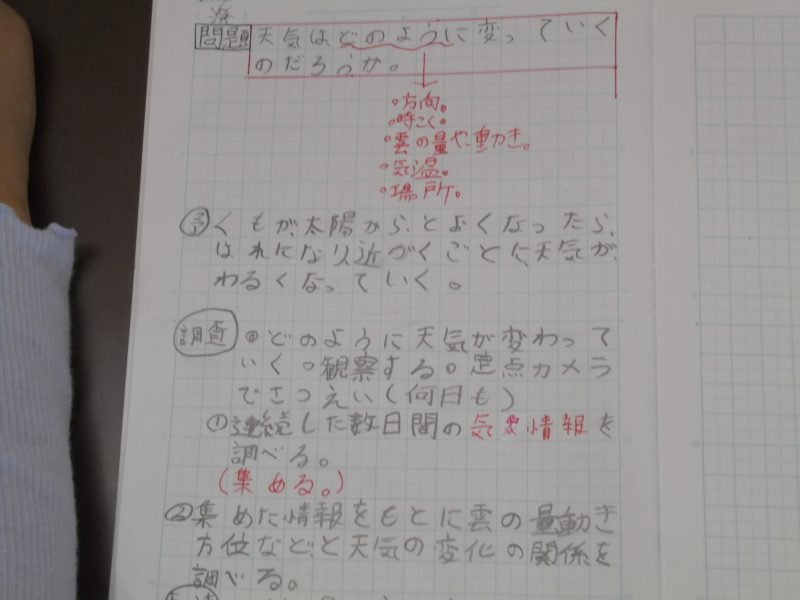 問題 天気はどのように変っていく
のだろうか。
・方向。
・時こく。
・雲の量や、動き。
・気温。
・場所。
予 くもが、太陽から、とよくなったら、
はれになり、近づくごとに、天気が、
わるくなっていく。
調査 ◎どのように天気が変わって
いく。観察する。定点カメラ
でさつえい(何日も)
① 連続した数日間の気象情報を
調べる。
(集める。)
② 集めた情報をもとに雲の量動き
方位など、と天気の変化の関係を
調べる。